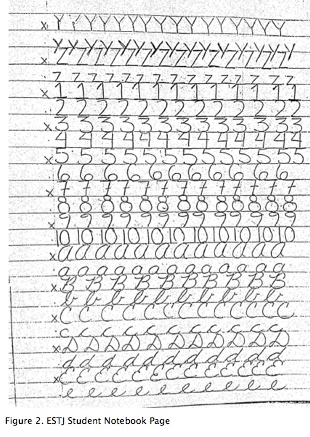 x YYYYYYYYYYYYYYYY
YYYYYYYYYYYYYYYY
x ZZZZZZZZZZZZ
7 7 7 7 7 7 7 7 7 7 7 7
x 1 1 1 1 1 1 1 1 1 1 1 1
2 2 2 2 2 2 2 2 2 2 2 2
x 3 3 3 3 3 3 3 3 3 3 3 3
4 4 4 4 4 4 4 4 4 4 4 4
x 5 5 5 5 5 5 5 5 5 5 5 5
6 6 6 6 6 6 6 6 6 6 6
x 7 7 7 7 7 7 7 7 7 7 7
8 8 8 8 8 8 8 8 8 8 8 8
x 9 9 9 9 9 9 9 9 9 9 9 9
10 10 10 10 10 10 10 10 10 10 10
x a a a a a a a a a a a
a a a a a a a a a a a a
x B B B B B B B B B B B
b b b b b b b b b b b
x C C C C C C C C C C C C
c c c c c c c c c c c
x D D D D D D D D D D D
d d d d d d d d d d d
x E E E E E E E E E E E E
e e e e e e e e e e e
Figure 2. ESTJ Student Notebook Page